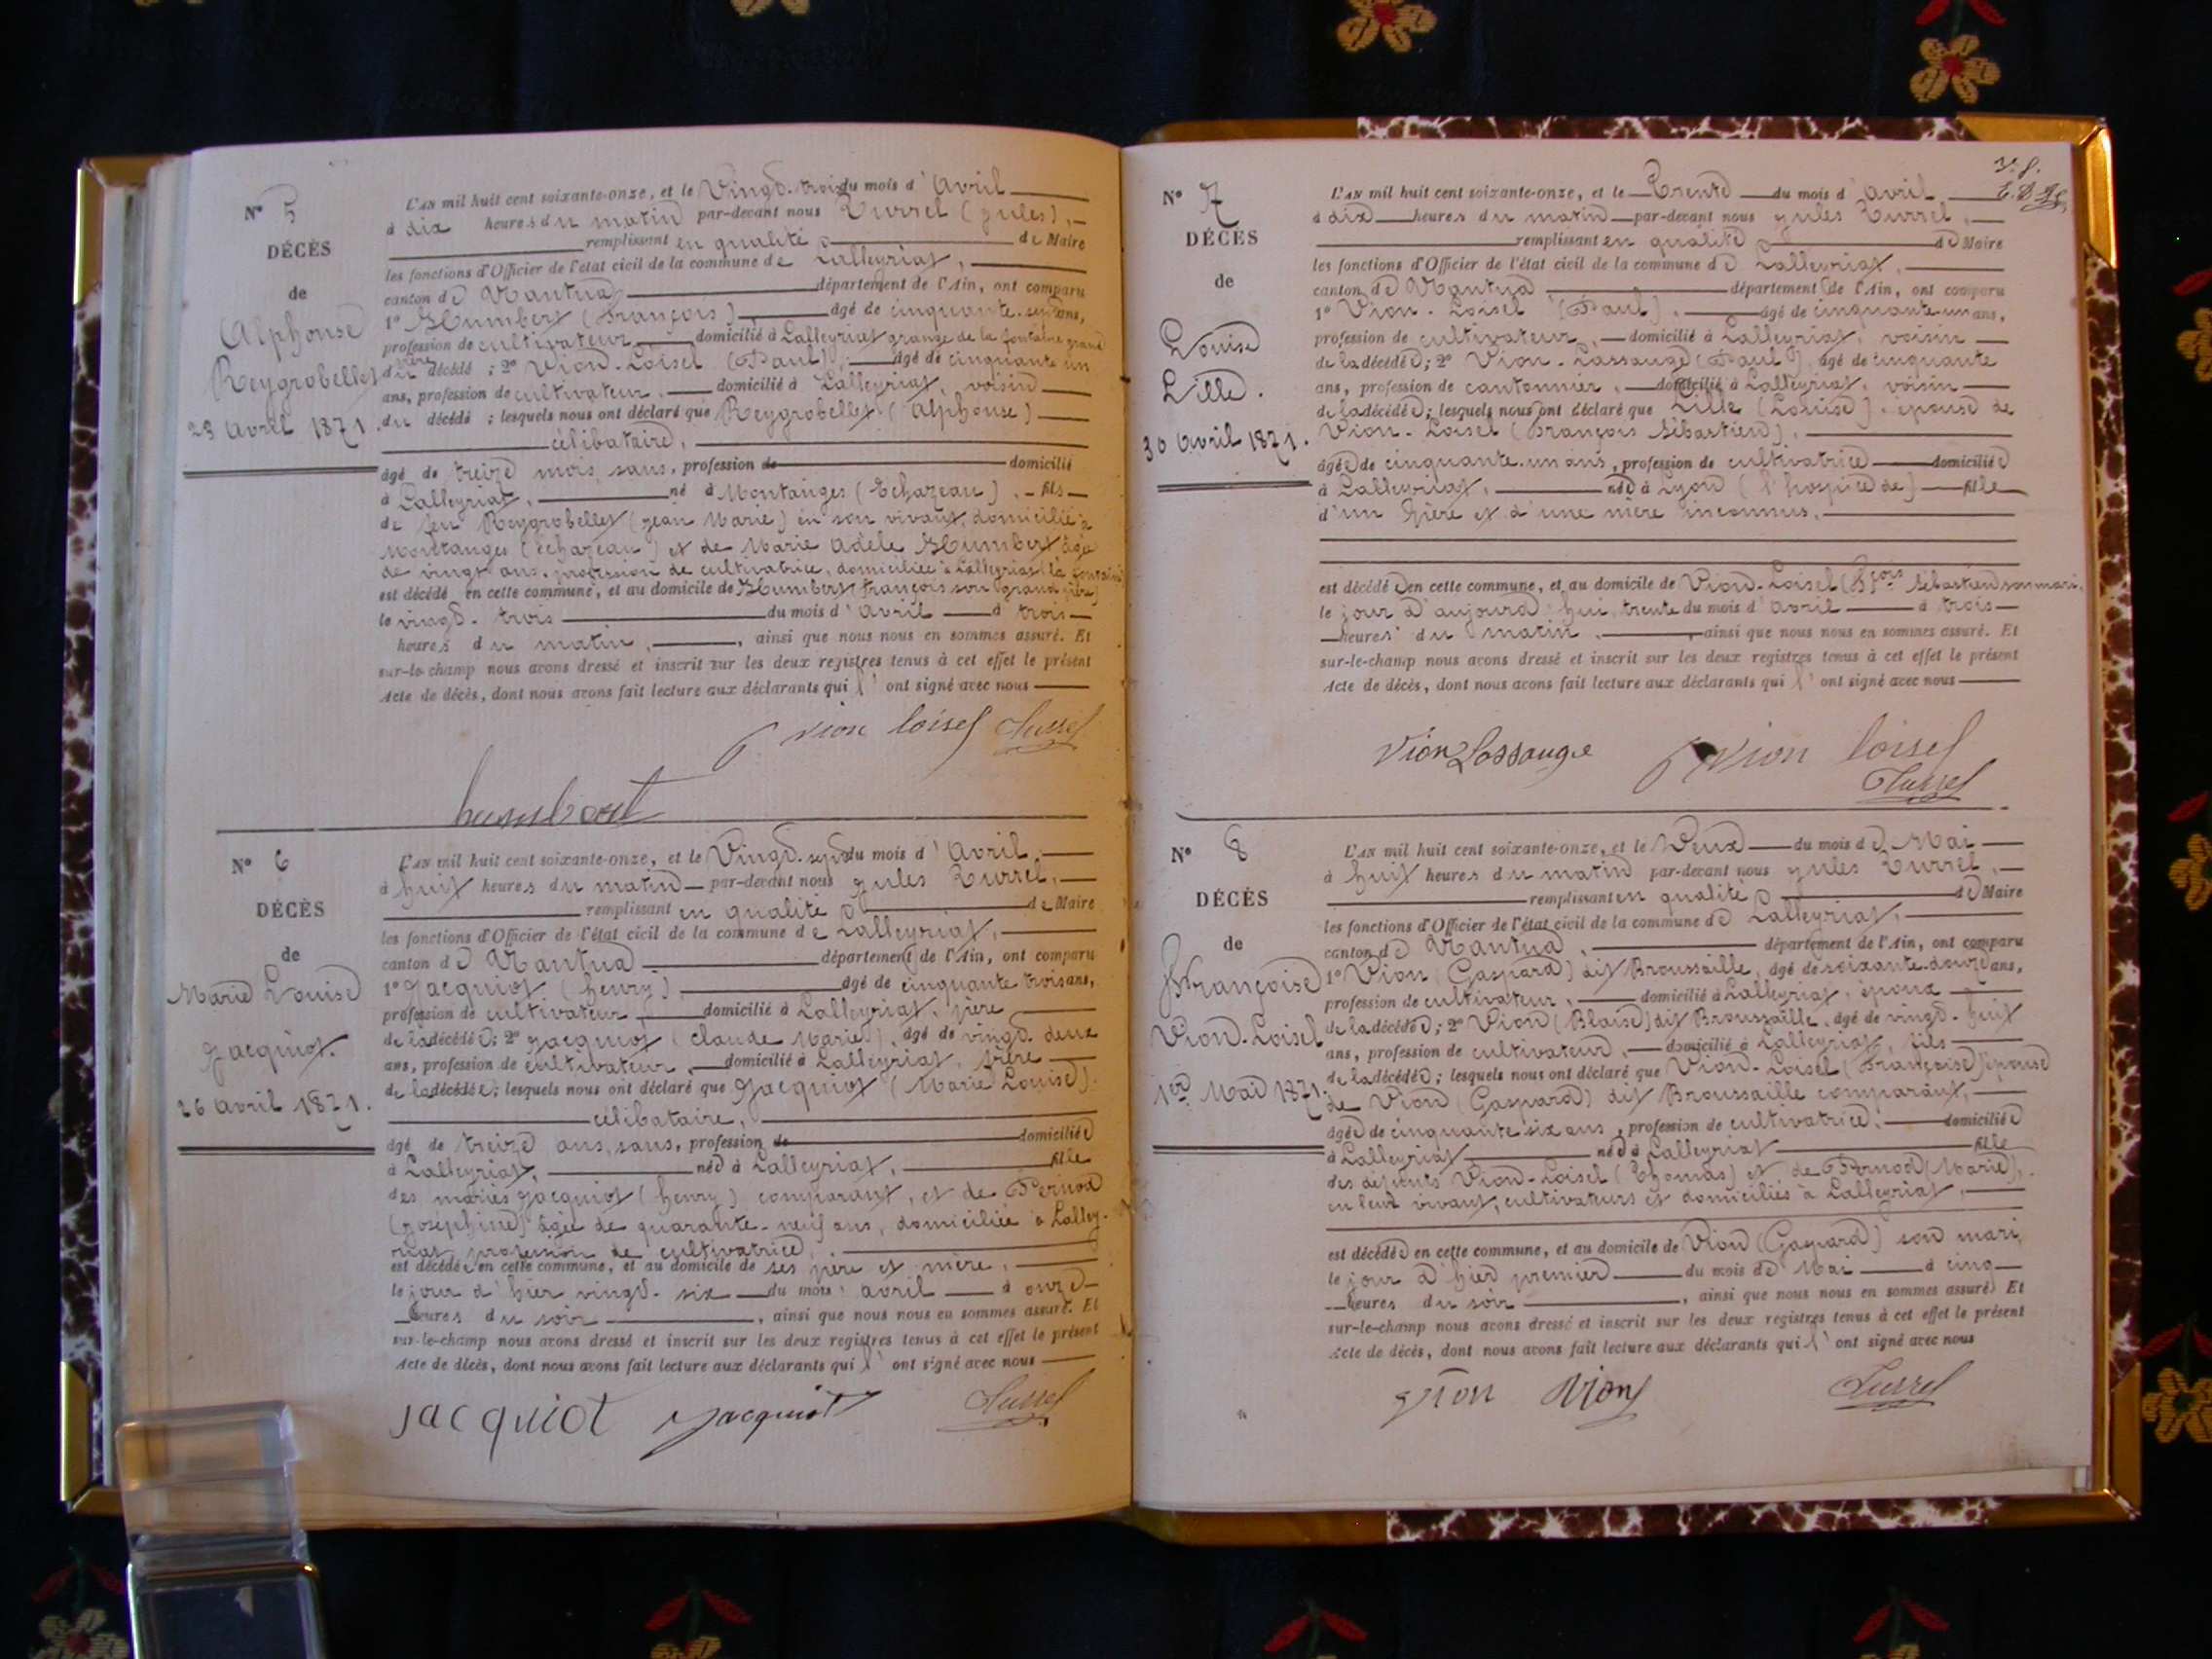 N° 5
DÉCÈS
de
Alphonse
Reygrobellet
23 Avril 1871.
L'AN mil huit cent soixante-onze, et le Vingt-trois du mois d'Avril
à dix heures du matin par-devant nous Turrel (Jules),
remplissant en qualité de Maire
les fonctions d'Officier de l'état civil de la commune de Lalleyriat,
canton de Nantua département de l'Ain, ont comparu
1° Humbert (François) âgé de cinquante-sept ans,
profession de cultivateur, domicilié à Lalleyriat grange de la fontaine grand
père du décédé ; 2° Vion-Loisel (Paul), âgé de cinquante un
ans, profession de cultivateur, domicilié à Lalleyriat, voisin
du décédé ; lesquels nous ont déclaré que Reygrobellet (Alphonse)
célibataire,
âgé de treize mois, sans, profession de domicilié
à Lalleyriat, né à Montanges (Echazeau), fils
de feu Reygrobellet (Jean Marie) en son vivant, domicilié à
Montanges (échazeau) et de Marie Adèle Humbert âgée
de vingt ans, profession de cultivatrice, domiciliée à Lalleyriat (la fontaine)
est décédé en cette commune, et au domicile de Humbert (françois son grand père)
le vingt-trois du mois d'avril à trois
heures du matin, ainsi que nous nous en sommes assuré. Et
sur-le-champ nous avons dressé et inscrit sur les deux registres tenus à cet effet le présent
Acte de décès, dont nous avons fait lecture aux déclarants qui l'ont signé avec nous
P vion loisel Turrel
humbert
N° 6
DÉCÈS
de
Marie Louise
Jacquiot.
26 avril 1871.
L'AN mil huit cent soixante-onze, et le Vingt-sept du mois d'Avril
à huit heures du matin par-devant nous Jules Turrel,
remplissant en qualité de Maire
les fonctions d'Officier de l'état civil de la commune de Lalleyriat,
canton de Nantua département de l'Ain, ont comparu
1° Jacquiot (henry) âgé de cinquante trois ans,
profession de cultivateur, domicilié à Lalleyriat, père
de la décédée ; 2° Jacquiot (claude Marie), âgé de vingt-deux
ans, profession de cultivateur, domicilié à Lalleyriat, frère
de la décédée ; lesquels nous ont déclaré que Jacquiot (Marie Louise).
célibataire,
âgé de treize ans, sans, profession de domiciliée
à Lalleyriat, née à Lalleyriat, fille
des mariés Jacquiot (henry) comparant, et de Pernod
(Joséphine) âgée de quarante-neuf ans, domiciliée à Lalley-
riat, profession de cultivatrice,
est décédée en cette commune, et au domicile de ses père et mère,
le jour d'hier vingt-six du mois avril à onze
heures du soir, ainsi que nous nous en sommes assuré. Et
sur-le-champ nous avons dressé et inscrit sur les deux registres tenus à cet effet le présent
Acte de décès, dont nous avons fait lecture aux déclarants qui l'ont signé avec nous
jacquiot Jacquiot Turrel
N° 7
DÉCÈS
de
Louise
Lille.
30 Avril 1871.
L'AN mil huit cent soixante-onze, et le Trente du mois d'avril
à dix heures du matin par-devant nous Jules Turrel,
remplissant en qualité de Maire
les fonctions d'Officier de l'état civil de la commune de Lalleyriat,
canton de Nantua département de l'Ain, ont comparu
1° Vion-Loisel (Paul), âgé de cinquante-un ans,
profession de cultivateur, domicilié à Lalleyriat, voisin
de la décédée ; 2° Vion-Lassauge (Paul), âgé de cinquante
ans, profession de cantonnier, domicilié à Lalleyriat, voisin
de la décédée ; lesquels nous ont déclaré que Lille (Louise), épouse de
Vion-Loisel (François Sébastien),
âgée de cinquante-un ans, profession de cultivatrice domiciliée
à Lalleyriat, née à Lyon (l'hospice de) fille
d'un père et d'une mère inconnus,
est décédée en cette commune, et au domicile de Vion-Loisel (fçois Sébastien son mari,
le jour d'aujourd'hui, trente du mois d'avril à trois
heures du matin, ainsi que nous nous en sommes assuré. Et
sur-le-champ nous avons dressé et inscrit sur les deux registres tenus à cet effet le présent
Acte de décès, dont nous avons fait lecture aux déclarants qui l'ont signé avec nous
Vion Lassauge P vion loisel
Turrel
N° 8
DÉCÈS
de
Françoise
Vion-Loisel
1er Mai 1871.
L'AN mil huit cent soixante-onze, et le Deux du mois de Mai
à huit heures du matin par-devant nous Jules Turrel,
remplissant en qualité de Maire
les fonctions d'Officier de l'état civil de la commune de Lalleyriat,
canton de Nantua, département de l'Ain, ont comparu
1° Vion (Gaspard) dit Broussaille, âgé de soixante-douze ans,
profession de cultivateur, domicilié à Lalleyriat, époux
de la décédée ; 2° Vion (Blaise) dit Broussaille, âgé de vingt-huit
ans, profession de cultivateur, domicilié à Lalleyriat, fils
de la décédée ; lesquels nous ont déclaré que Vion-Loisel (Françoise) épouse
de Vion (Gaspard) dit Broussaille comparant,
âgée de cinquante six ans, profession de cultivatrice, domiciliée
à Lalleyriat née à Lalleyriat fille
des défunts Vion-Loisel (Thomas) et de Pernod (Marie),
en leur vivant, cultivateurs et domiciliés à Lalleyriat,
est décédée en cette commune, et au domicile de Vion (Gaspard) son mari,
le jour d'hier premier du mois de Mai à cinq
heures du soir, ainsi que nous nous en sommes assuré. Et
sur-le-champ nous avons dressé et inscrit sur les deux registres tenus à cet effet le présent
Acte de décès, dont nous avons fait lecture aux déclarants qui l'ont signé avec nous
vion Vion Turrel